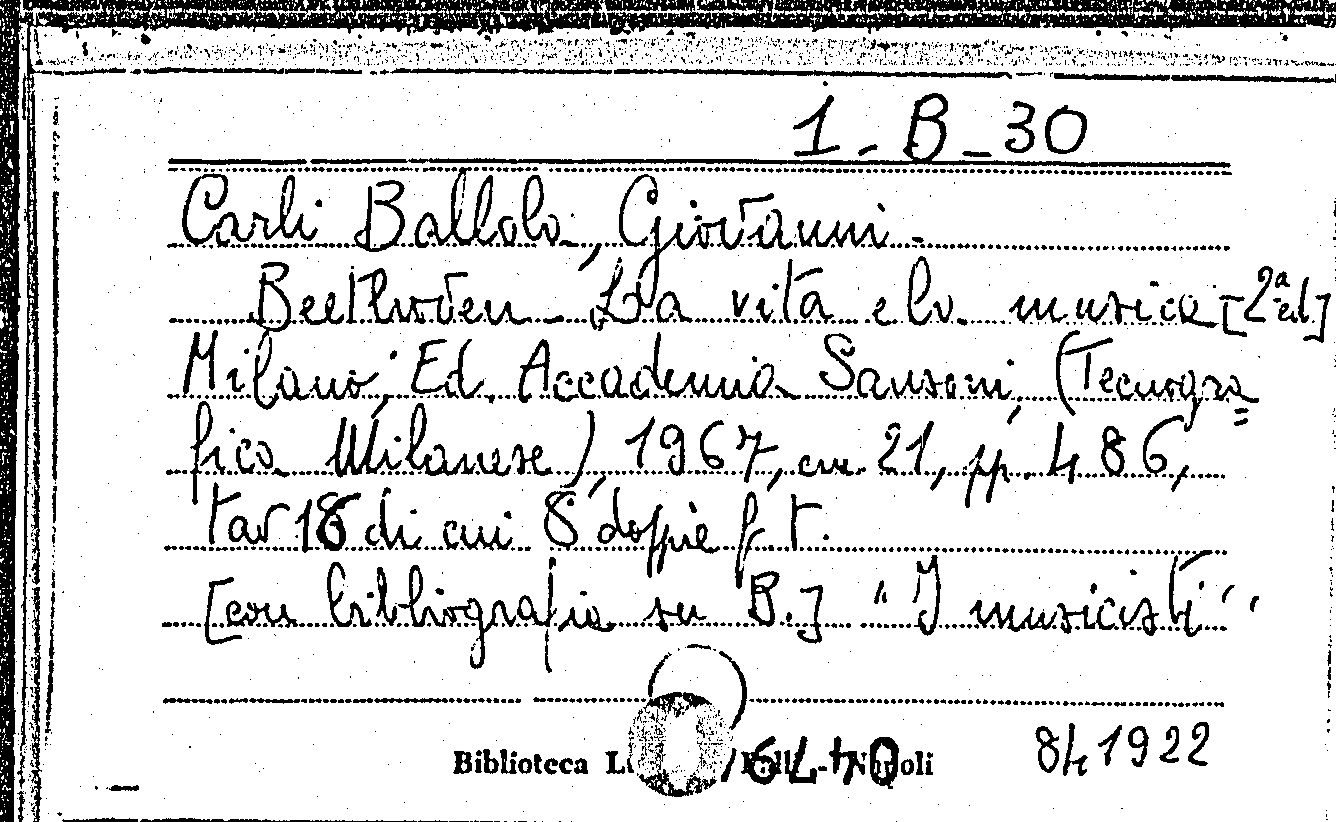 1-B-30
Carli Ballola, Giovanni.
Beethoven - La vita e la musica [2ª ed]
Milano, Ed. Accademia Sansoni, (Tecnogra=
fica Milanese), 1967, cm. 21, pp. 486,
tav 18 di cui 8 doppie f t.
[con bibliografia su B.] "I musicisti"
Biblioteca
841922